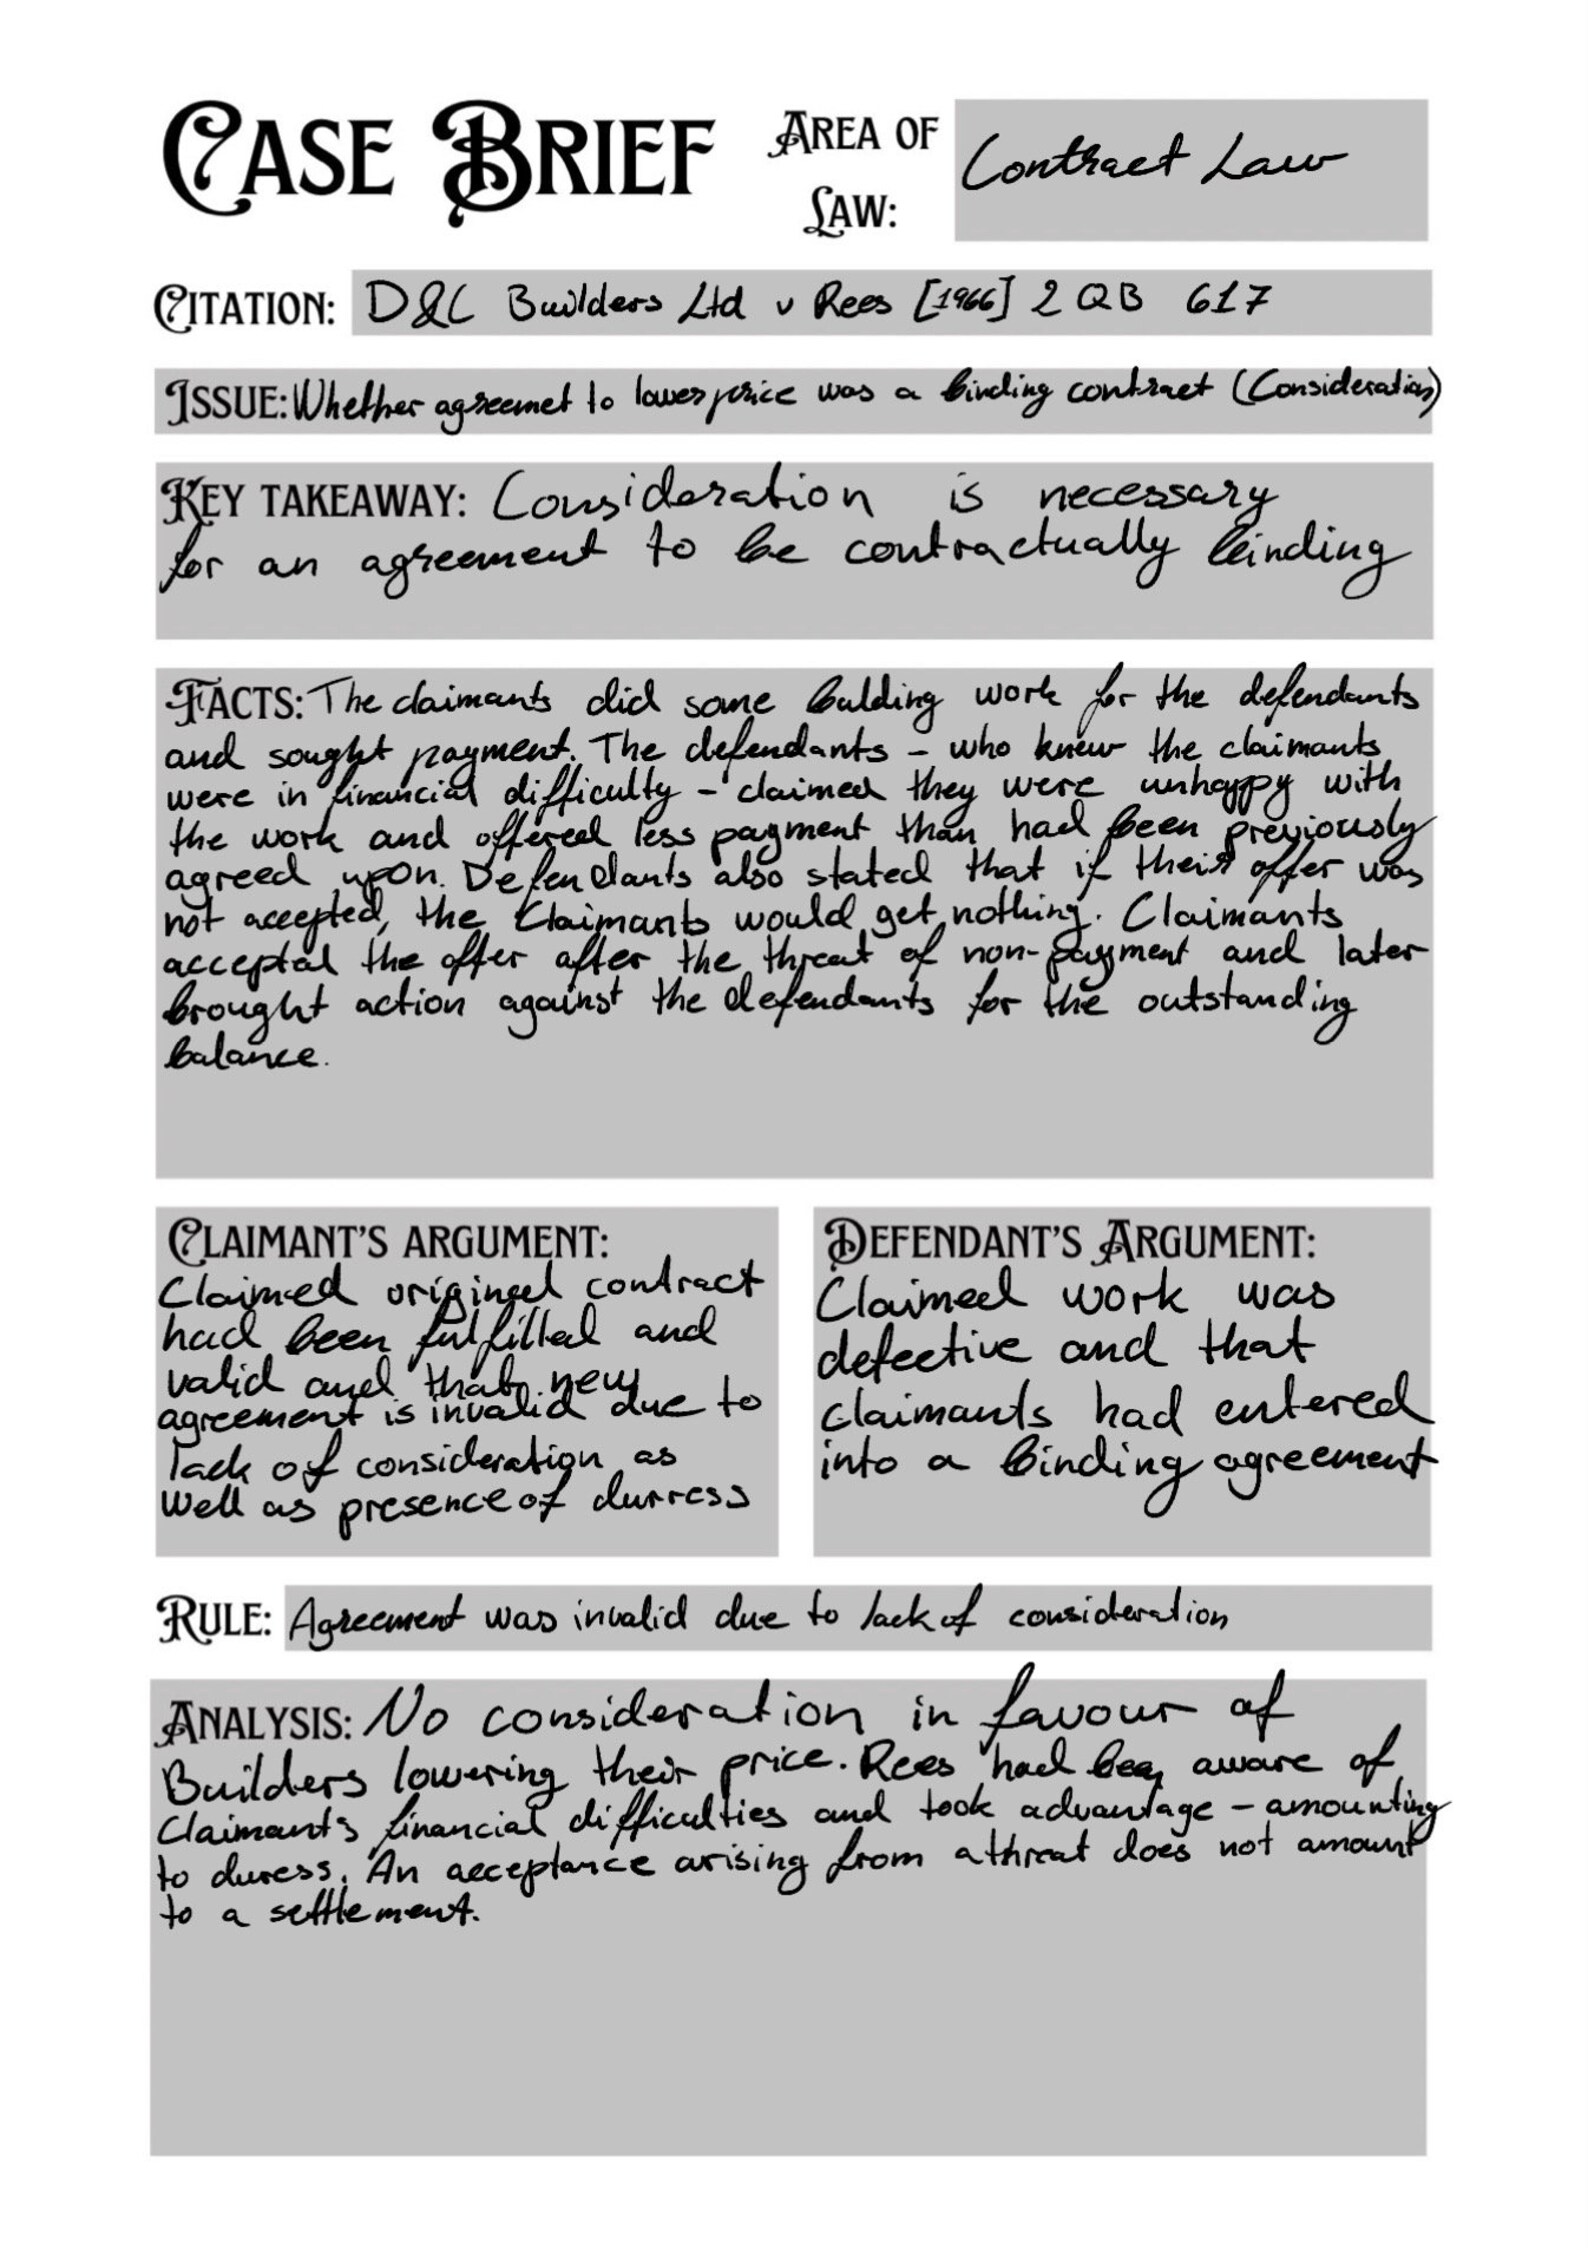 CASE BRIEF
AREA OF LAW: Contract Law
CITATION: D&C Builders Ltd v Rees [1966] 2 QB 617
ISSUE: Whether agreemet to lower price was a binding contract (Consideration)
KEY TAKEAWAY: Consideration is necessary
for an agreement to be contractually binding
FACTS: The claimants did some bulding work for the defendants
and sought payment. The defendants - who knew the claimants
were in financial difficulty - claimed they were unhappy with
the work and offered less payment than had been previously
agreed upon. Defendants also stated that if their offer was
not accepted, the Claimants would get nothing. Claimants
accepted the offer after the threat of non-payment and later
brought action against the defendants for the outstanding
balance.
CLAIMANT'S ARGUMENT:
Claimed original contract
had been fulfilled and
valid and that new
agreement is invalid due to
lack of consideration as
well as presence of durress
DEFENDANT'S ARGUMENT:
Claimed work was
defective and that
claimants had entered
into a binding agreement
RULE: Agreement was invalid due to lack of consideration
ANALYSIS: No consideration in favour of
Builders lowering their price. Rees had been aware of
Claimants financial difficulties and took advantage - amounting
to duress. An acceptance arising from a threat does not amount
to a settlement.